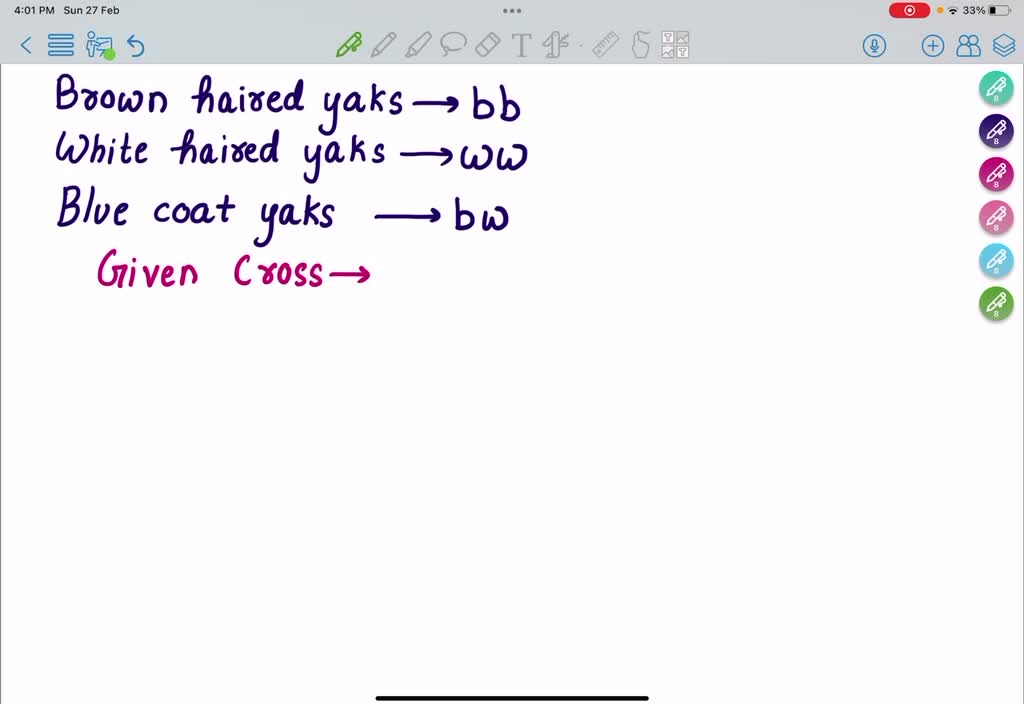 4:01 PM Sun 27 Feb
33%
T
T
T
8
8
8
8
8
8
Brown haired yaks → bb
White haired yaks → ww
Blue coat yaks → bw
Given Cross →